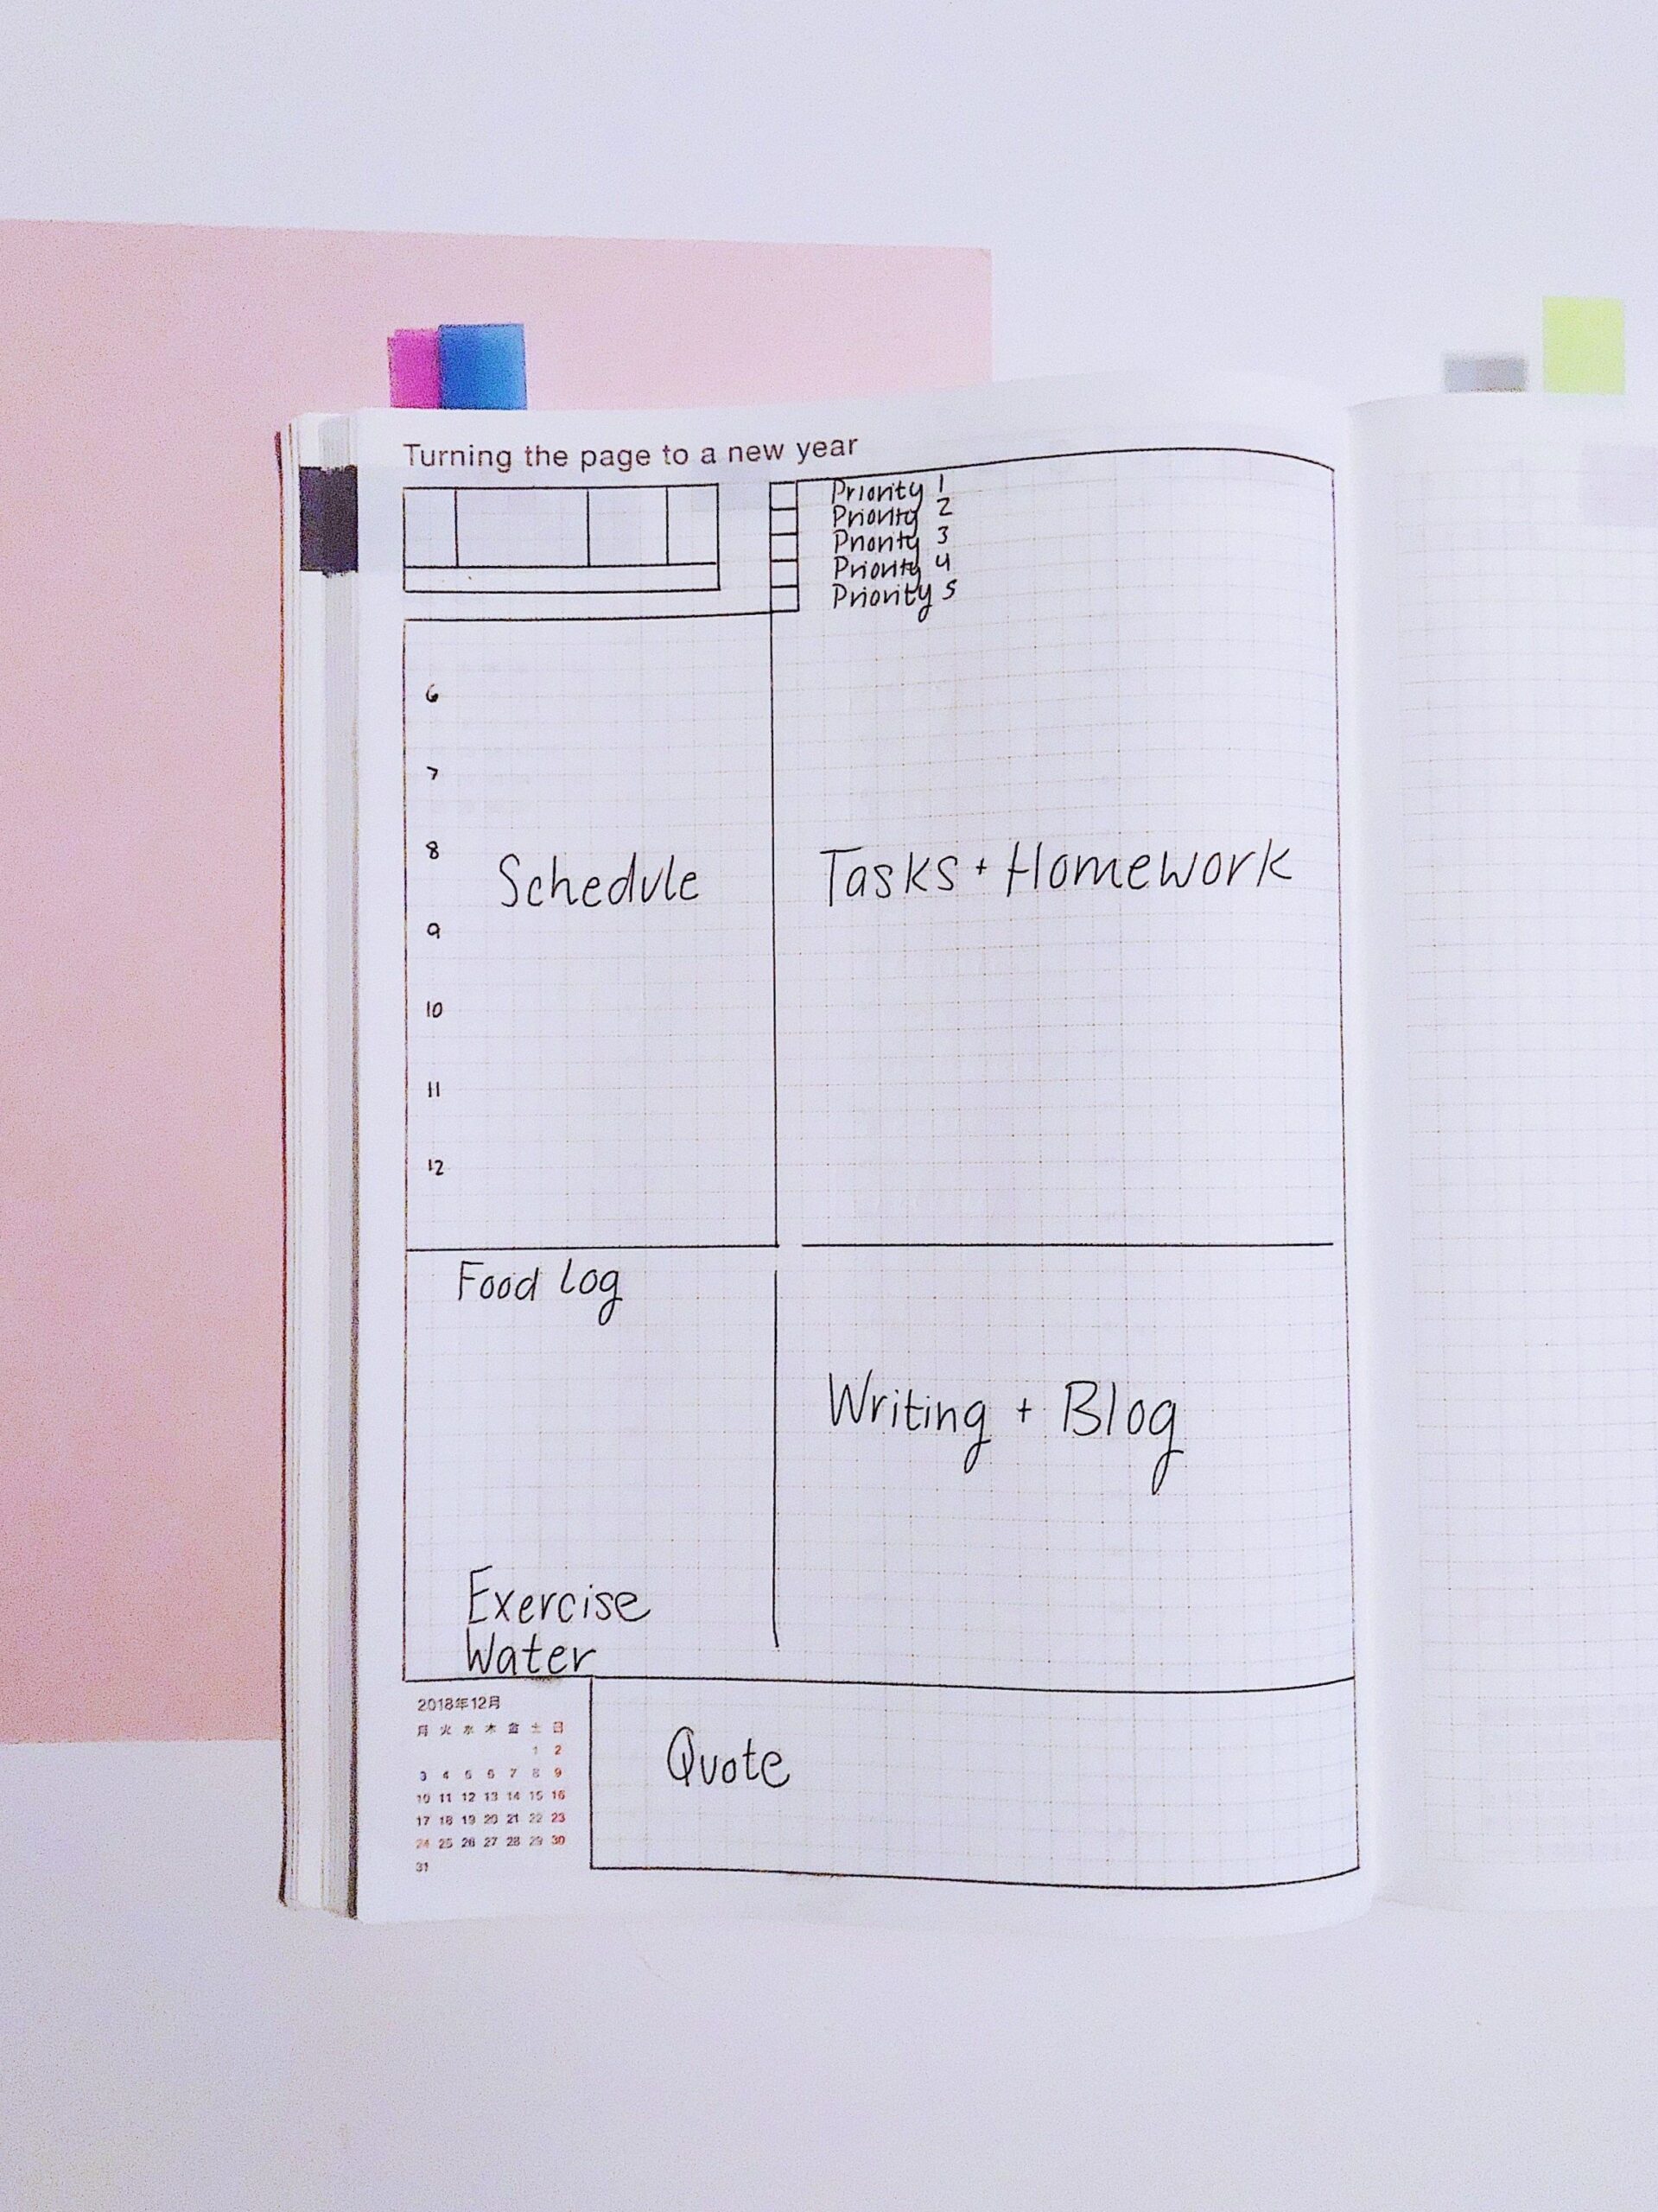 Turning the page to a new year
Priority 1
Priority 2
Priority 3
Priority 4
Priority 5
6
7
8
Schedule
Tasks + Homework
9
10
11
12
Food Log
Writing + Blog
Exercise
Water
2018年12月
月 火 水 木 金 土 日
1 2
3 4 5 6 7 8 9
10 11 12 13 14 15 16
17 18 19 20 21 22 23
24 25 26 27 28 29 30
31
Quote